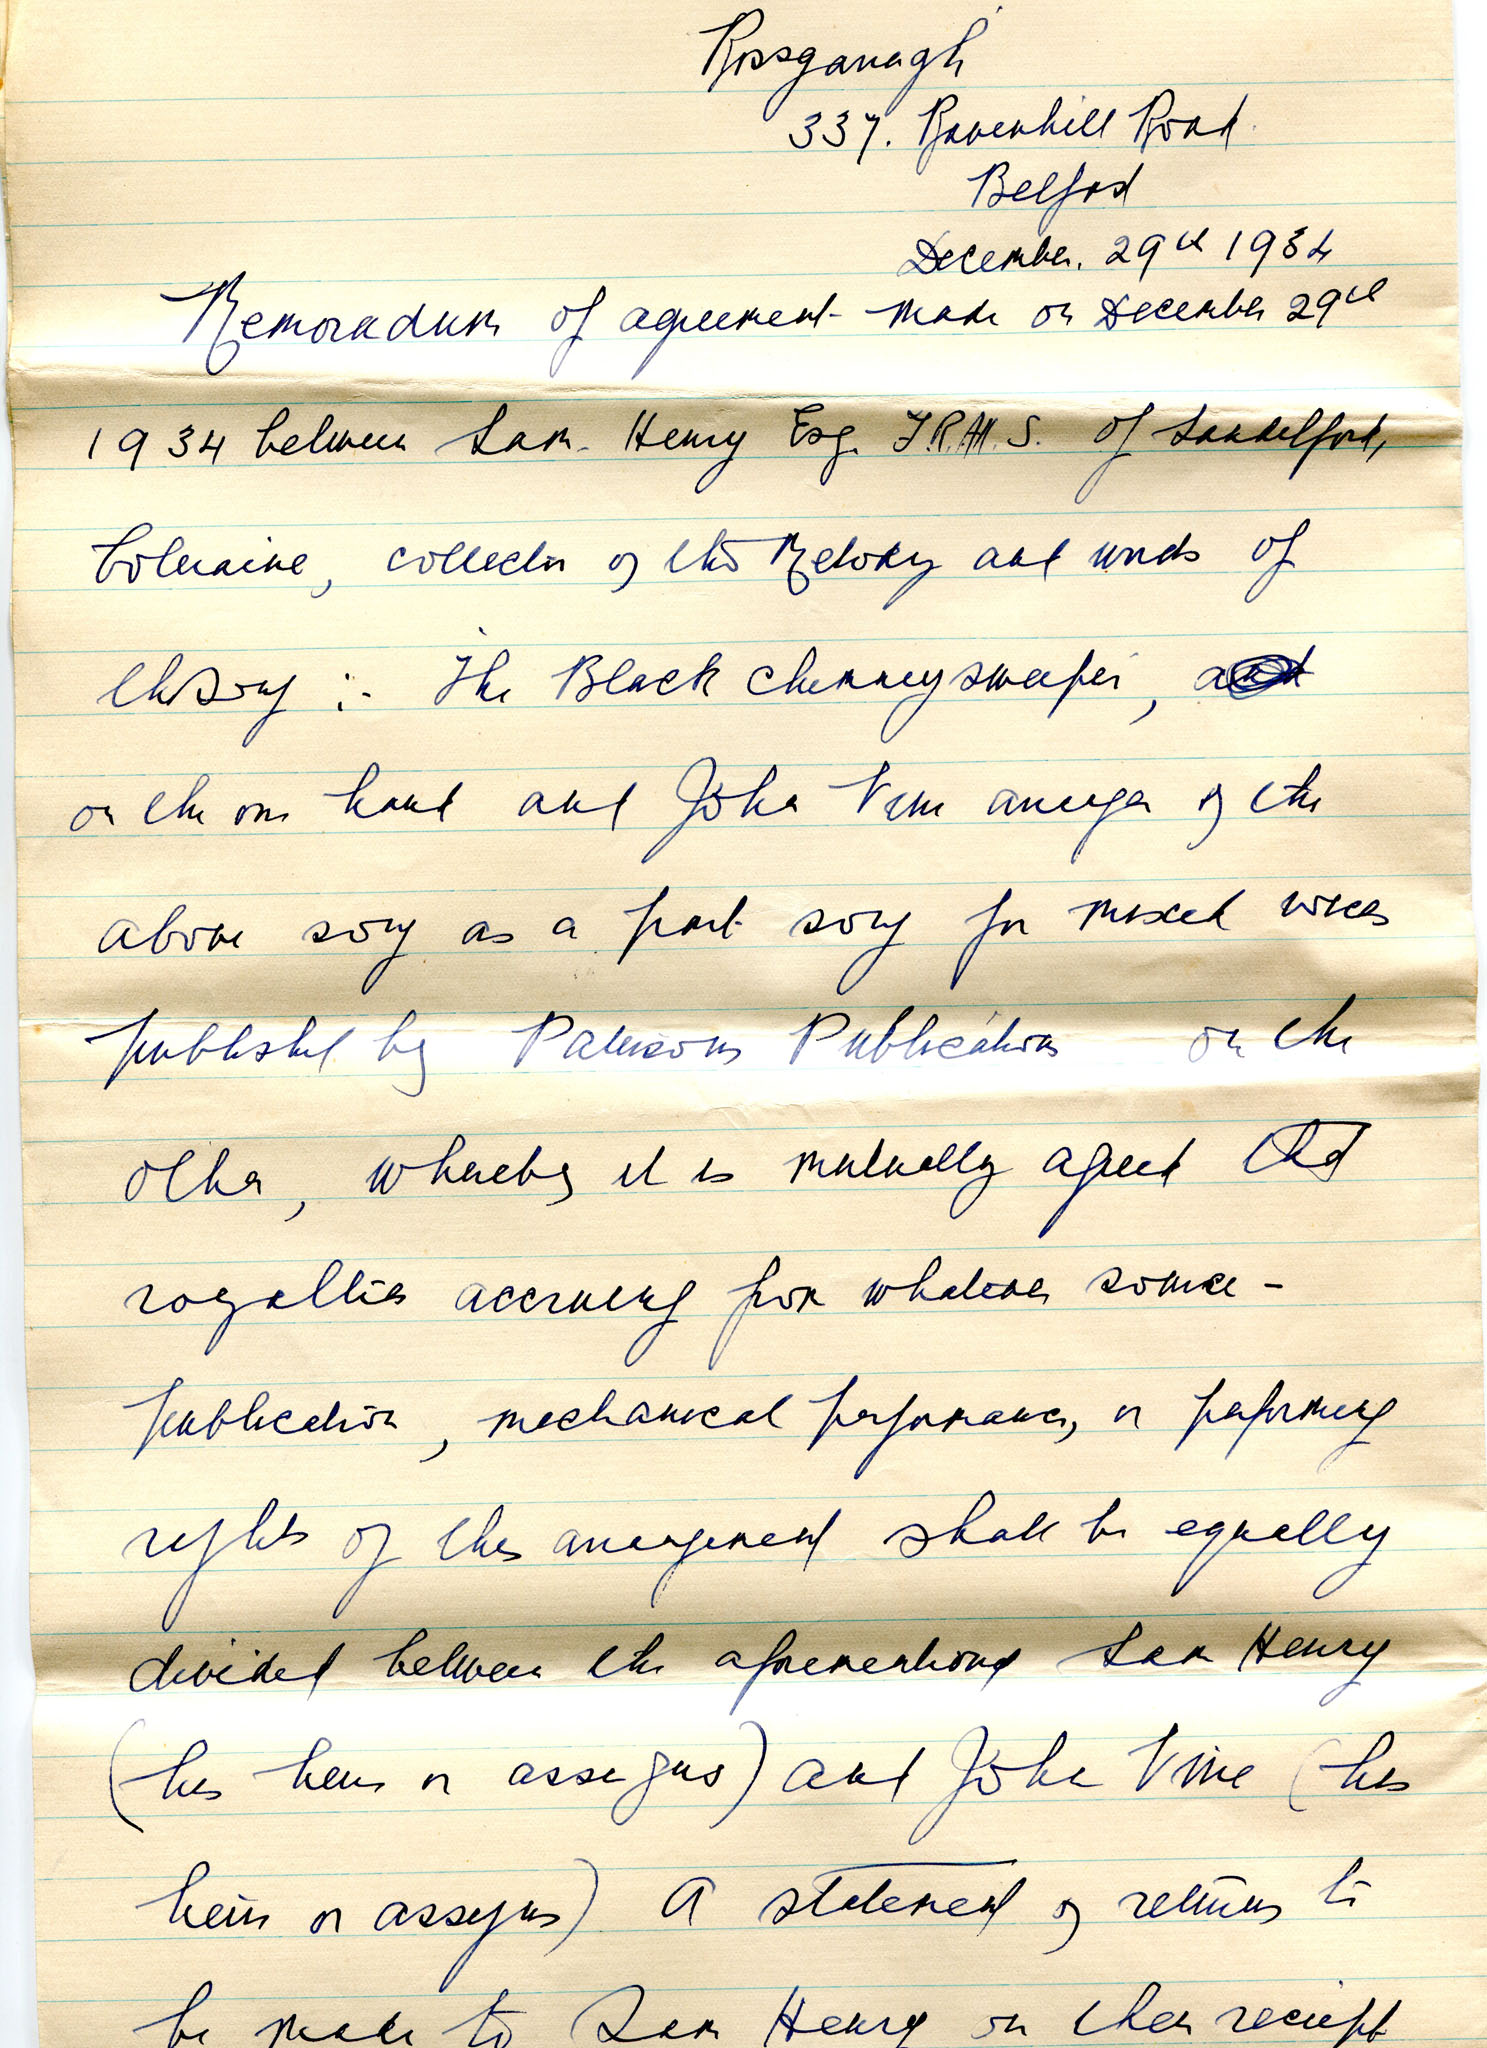 Rossganagh
337. Ravenhill Road.
Belfast
December. 29th 1934
Memoradum of agreement made on December 29th
1934 between Sam. Henry Esq. F.R.A.M.S. of Sandelford,
Coleraine, collector of the Melody and words of
the song :- The Black chimney sweeper, and
on the one hand and John Vine arranger of the
above song as a part song for mixed voices
published by Patersons Publications on the
other, whereby it is mutually agreed that
royalties accruing from whatever source -
publication, mechanical performance, or performing
rights of this arrangement shall be equally
divided between the aforementioned Sam Henry
(his heirs or assigns) and John Vine (his
heirs or assigns) A statement of returns to
be made to Sam Henry on their receipt